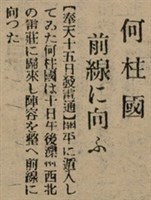 何柱國
前線に向ふ
【奉天十五日發電通】開平に遁入し
てゐた何柱國は十日午後灤州西北
の雷莊に歸來し陣容を整へ前線に
向つた